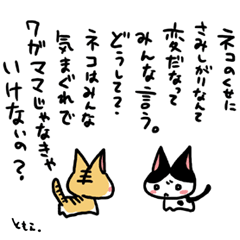 ネコのくせに
さみしがりなんて
変だなって
みんな言う。
どうして?
ネコはみんな
気まぐれで
ワガママじゃなきゃ
いけないの?
ともえ.